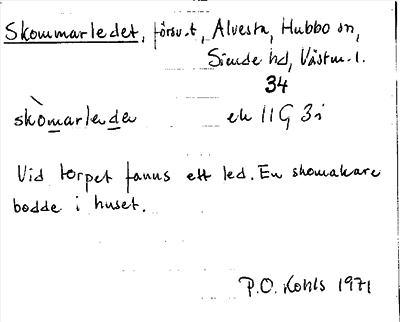 Skommarledet, försv. t, Alvesta, Hubbo sn,
Siende hd, Västm. l.
34
skòmarleda ek 11G 3i
Vid torpet fanns ett led. En skomakare
bodde i huset.
P.O. Kohls 1971